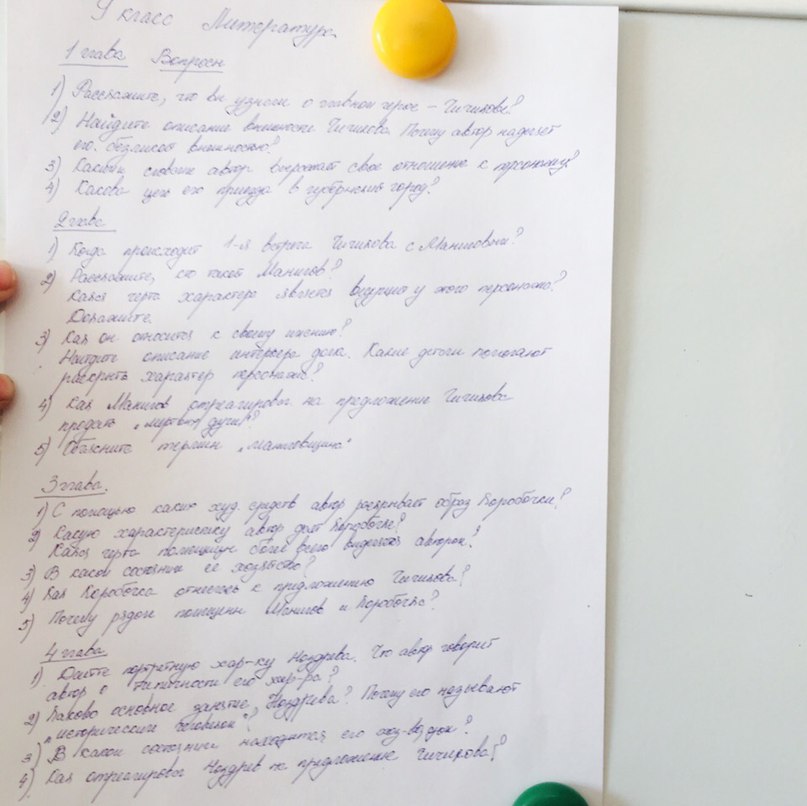 9 класс Литература
1 глава Вопросы
1) Расскажите, что вы узнали о главном герое – Чичикове?
2) Найдите описание внешности Чичикова. Почему автор наделяет
его безликой внешностью?
3) Какими словами автор выражает свое отношение к персонажу?
4) Какова цель его приезда в губернский город?
2 глава
1) Когда происходит 1-я встреча Чичикова с Маниловым?
2) Расскажите, кто такой Манилов?
Какая черта характера является ведущей у этого персонажа?
Докажите.
3) Как он относится к своему имению?
Найдите описание интерьера дома. Какие детали помогают
раскрыть характер персонажа?
4) Как Манилов отреагировал на предложение Чичикова
продать „мертвые души"?
5) Объясните термин „маниловщина"
3 глава.
1) С помощью каких худ. средств автор раскрывает образ Коробочки?
2) Какую характеристику автор дает Коробочке?
Какая черта помещицы более всего видится автором?
3) В каком состоянии ее хозяйство?
4) Как Коробочка отнеслась к предложению Чичикова?
5) Почему рядом помещены Манилов и Коробочка?
4 глава
1) Дайте портретную хар-ку Ноздрева. Что автор говорит
автор о типичности его хар-ра?
2) Каково основное занятие Ноздрева? Почему его называют
„историческим человеком"?
3) В каком состоянии находится его
4) Как отреагировал Ноздрев на предложение Чичикова?